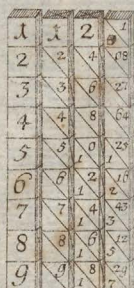 1 1 2 1
2 2 4 08
3 3 6 27
4 4 8 64
5 5 1/0 1/25
6 6 1/2 2/16
7 7 1/4 3/43
8 8 1/6 5/12
9 9 1/8 7/29